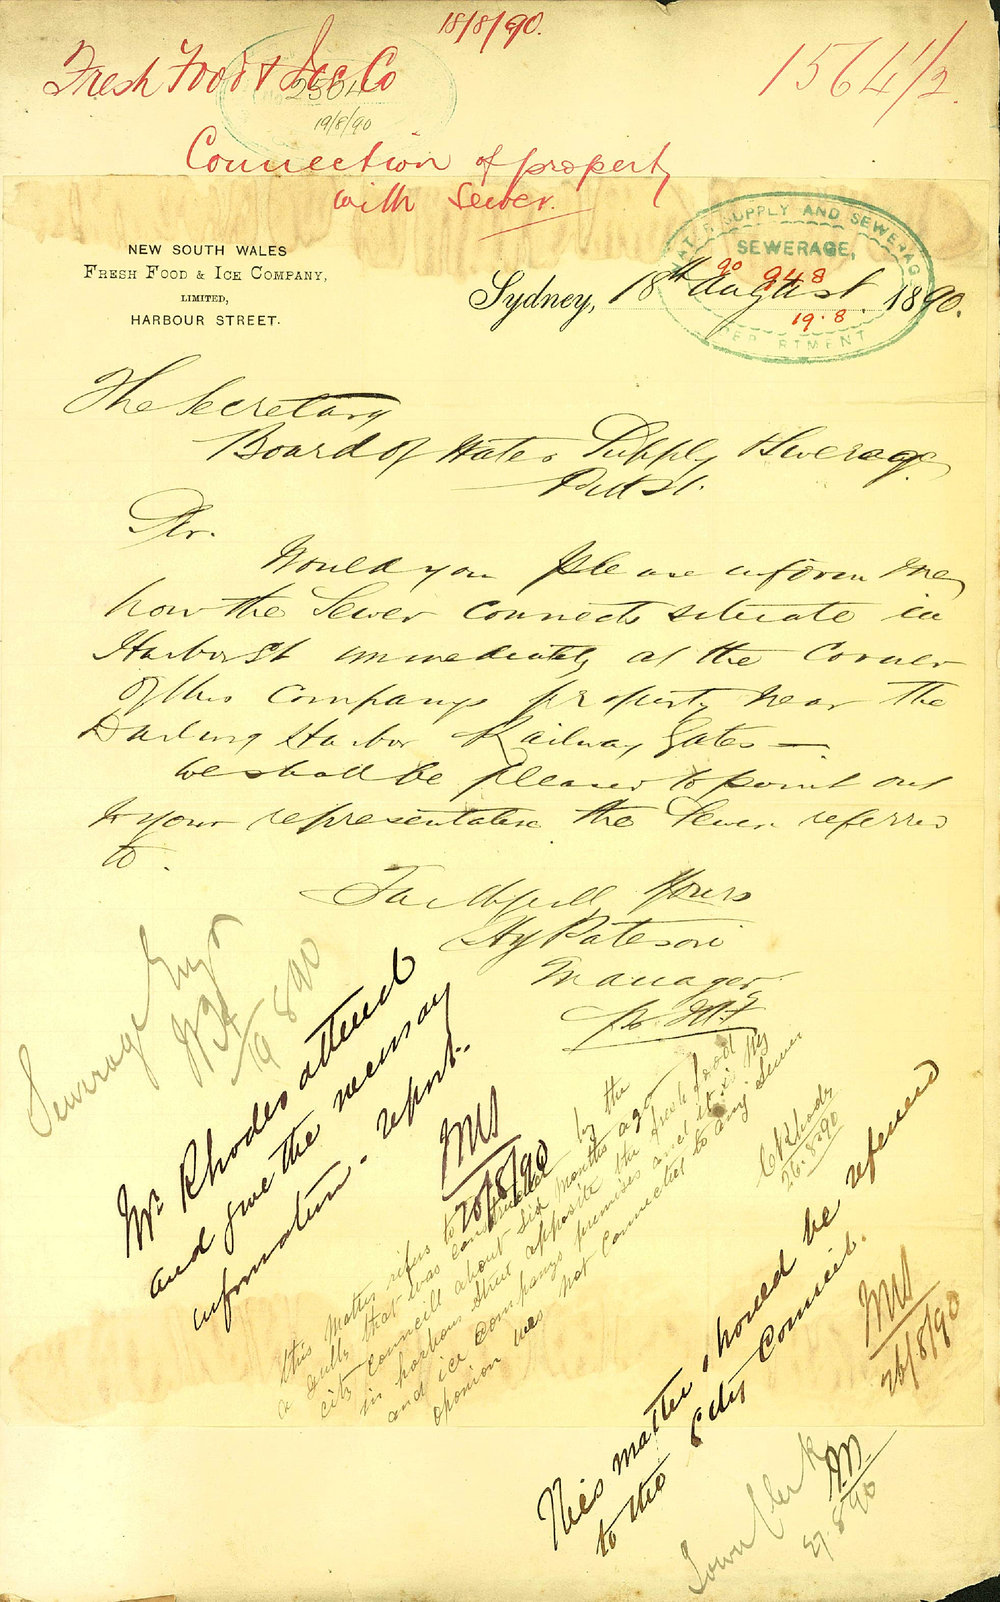 18/8/90.
Fresh Food & Ice Co
1564 1/2
2564
19/8/90
Connection of property
with Sewer.
WATER SUPPLY AND SEWERAGE
SEWERAGE,
90 948
19.8
DEPARTMENT
NEW SOUTH WALES
FRESH FOOD & ICE COMPANY,
LIMITED,
HARBOUR STREET.
Sydney, 18th August. 1890.
The Secretary
Board of Water Supply & Sewerage
Pitt St.
Sir.
Would you please inform me
how the Sewer connects situate in
Harbor St immediately at the Corner
of this Companys property near the
Darling Harbor Railway Gates —
We shall be pleased to point out
to your representative the Sewer referred
to.
Faithfully Yours
Hy Pateson
Manager
Sewerage Engr
19/8/90
Mr. Rhodes attend
and give the necessary
information - report.
20/8/90
this matter refers to
a gully that was constructed by the
city council about six months ago
in harbour Street opposite the fresh food
and ice companys premises and it is my
opinion was not connected to any sewer
C Rhodes
26.8.90
This matter should be referred
to the City Council.
26/8/90
Town Clerk
27.8.90